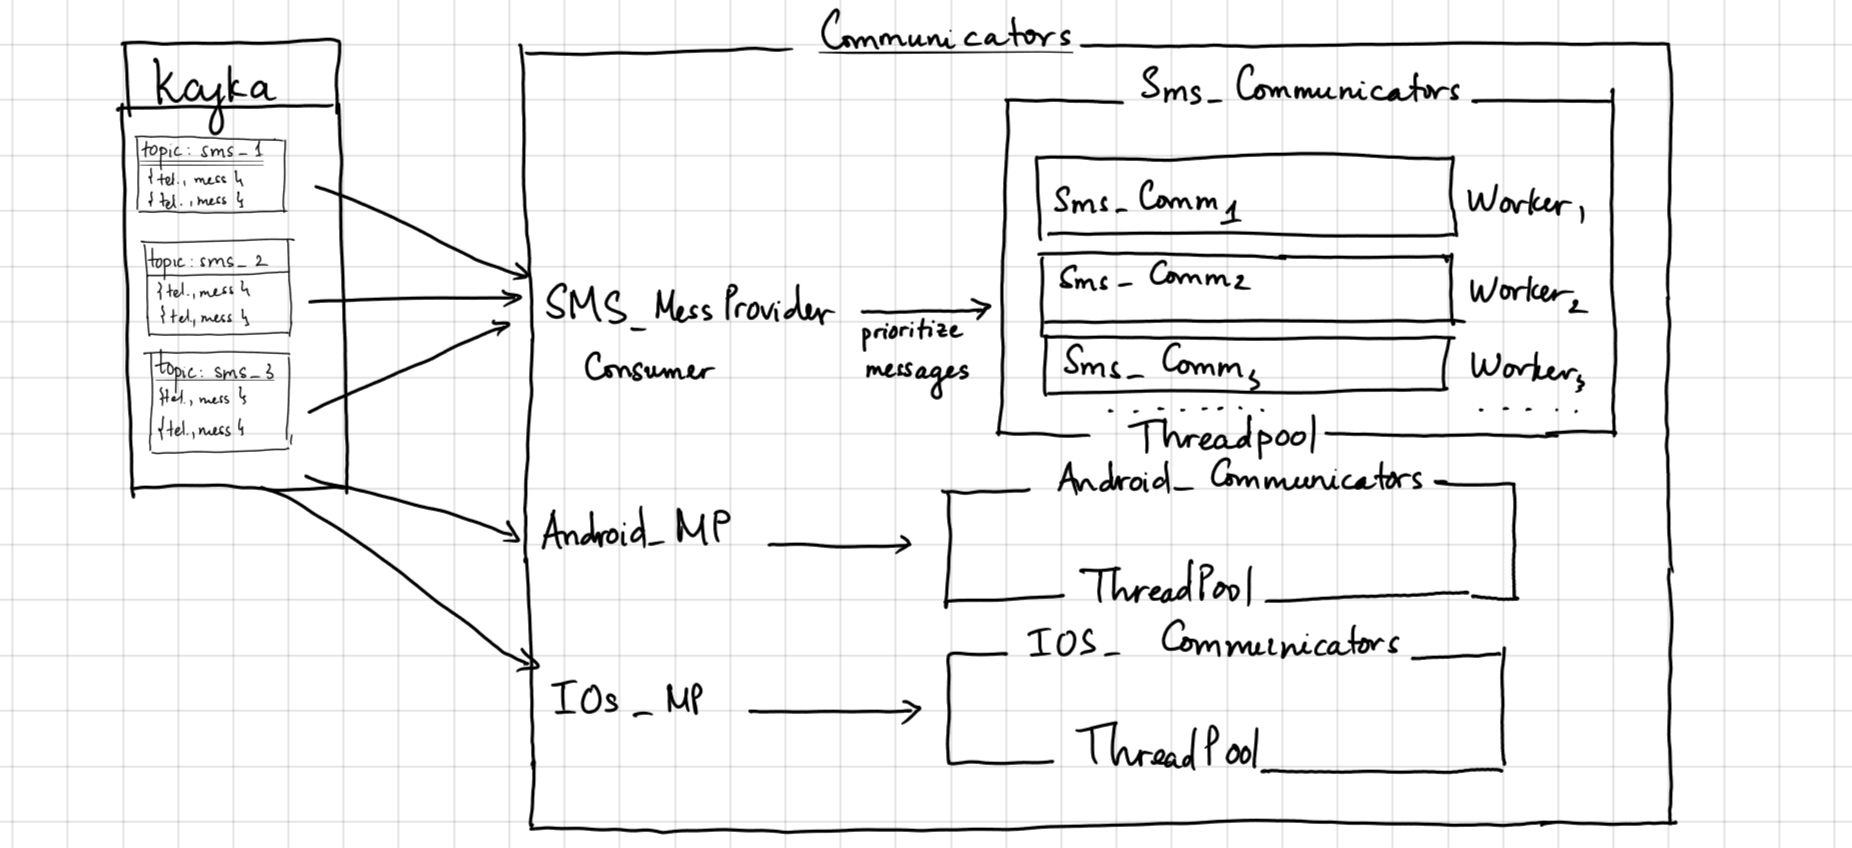 Communicators
Kafka
topic: sms_1
{tel., mess}
{tel., mess}
topic: sms_2
{tel., mess}
{tel, mess}
topic: sms_3
{tel., mess}
{tel., mess}
SMS_Mess Provider
Consumer
prioritize
messages
Sms_ Communicators
Sms_ Comm1
Worker1
Sms_ Comm2
Worker2
Sms_ Comm3
Worker3
. . . . . . . .
. . . . .
Threadpool
Android_MP
Android_ Communicators
ThreadPool
IOs_MP
IOS_ Communicators
ThreadPool